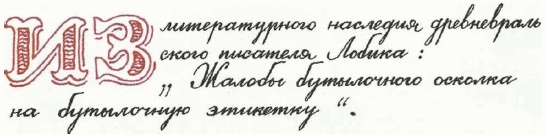 ИЗ литературного наследия древневраль
ского писателя Лобика :
„ Жалобы бутылочного осколка
на бутылочную этикетку “.